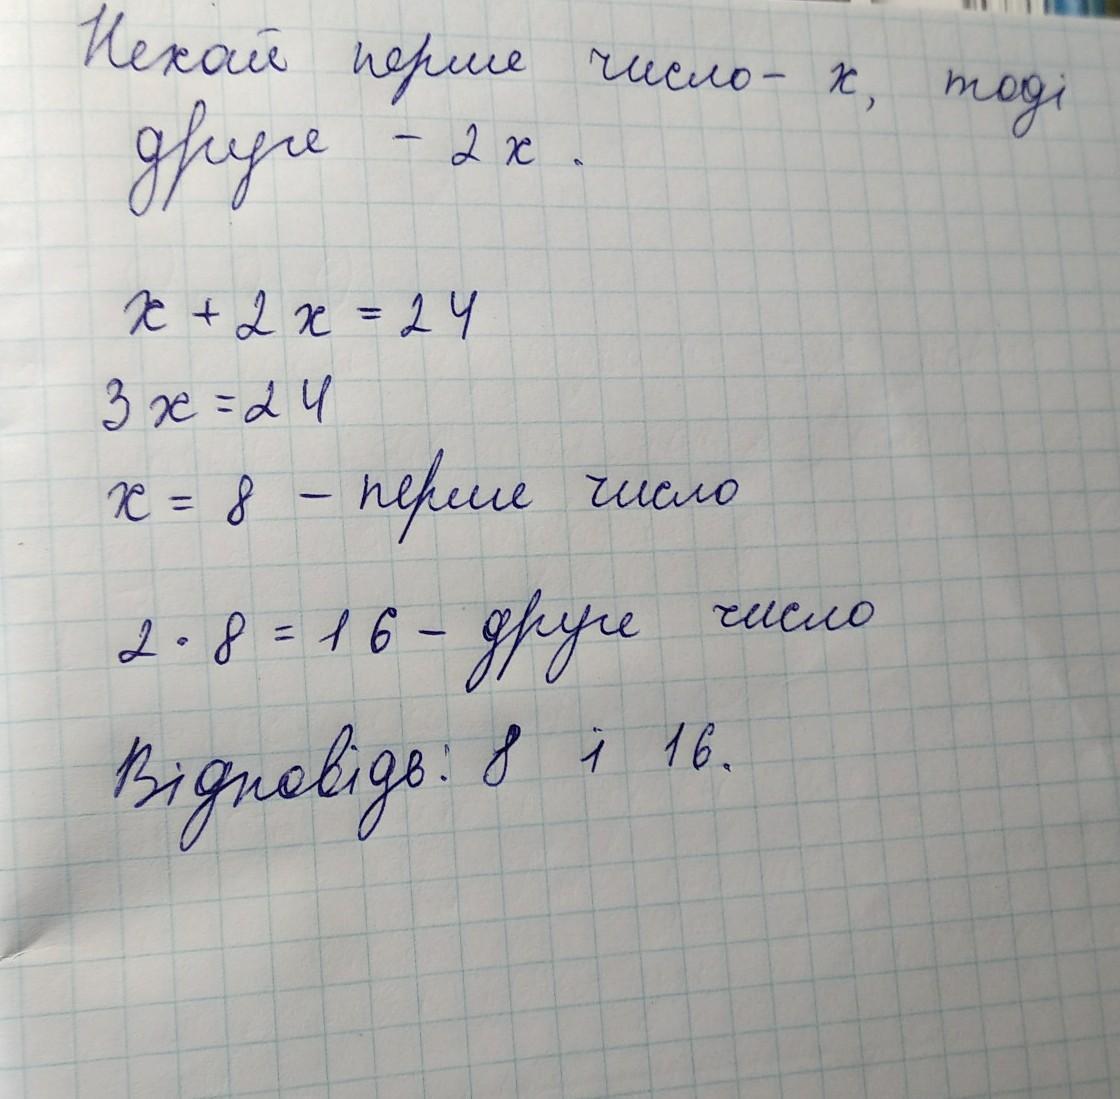 Нехай перше число - x, тоді
друге - 2x.
x + 2x = 24
3x = 24
x = 8 - перше число
2 · 8 = 16 - друге число
Відповідь: 8 і 16.